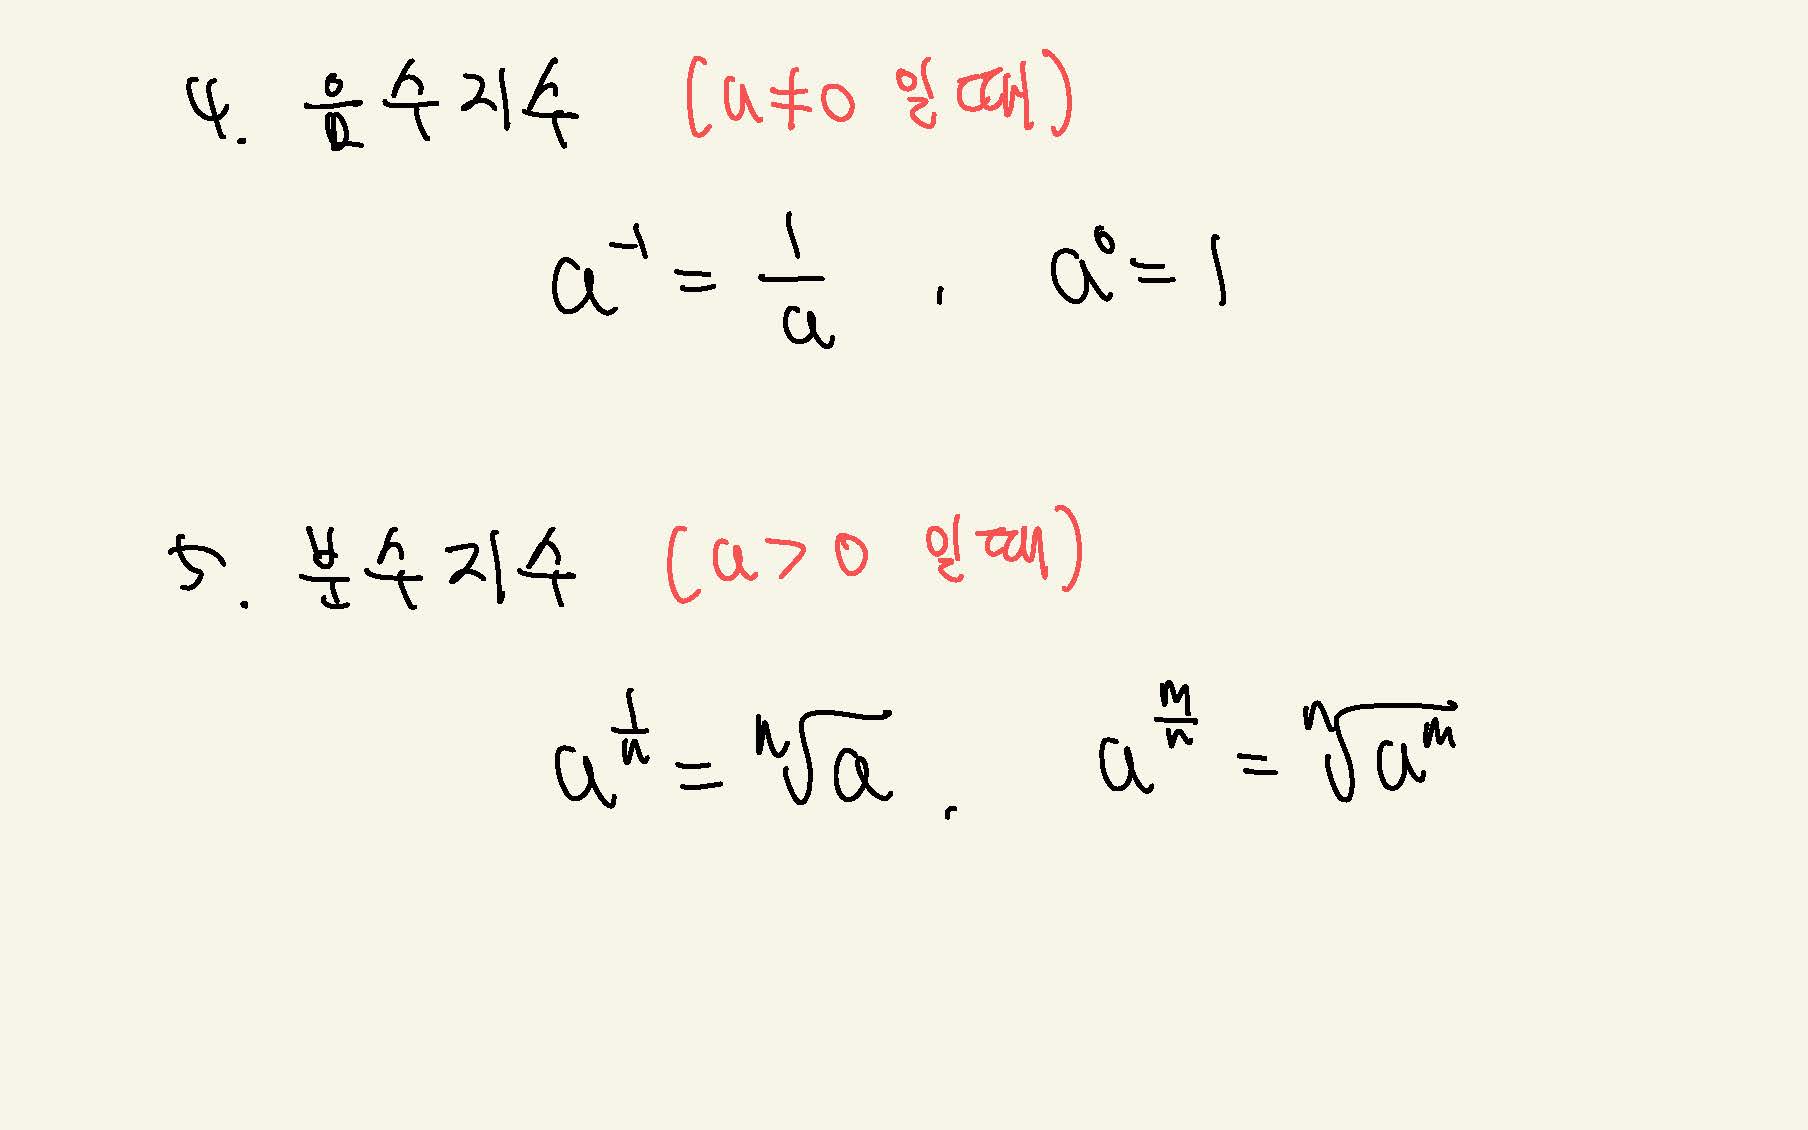 4. 음수지수 (a≠0 일 때)
a⁻¹ = 1/a , a⁰ = 1
5. 분수지수 (a>0 일 때)
a^(1/n) = ⁿ√a , a^(m/n) = ⁿ√(a^m)